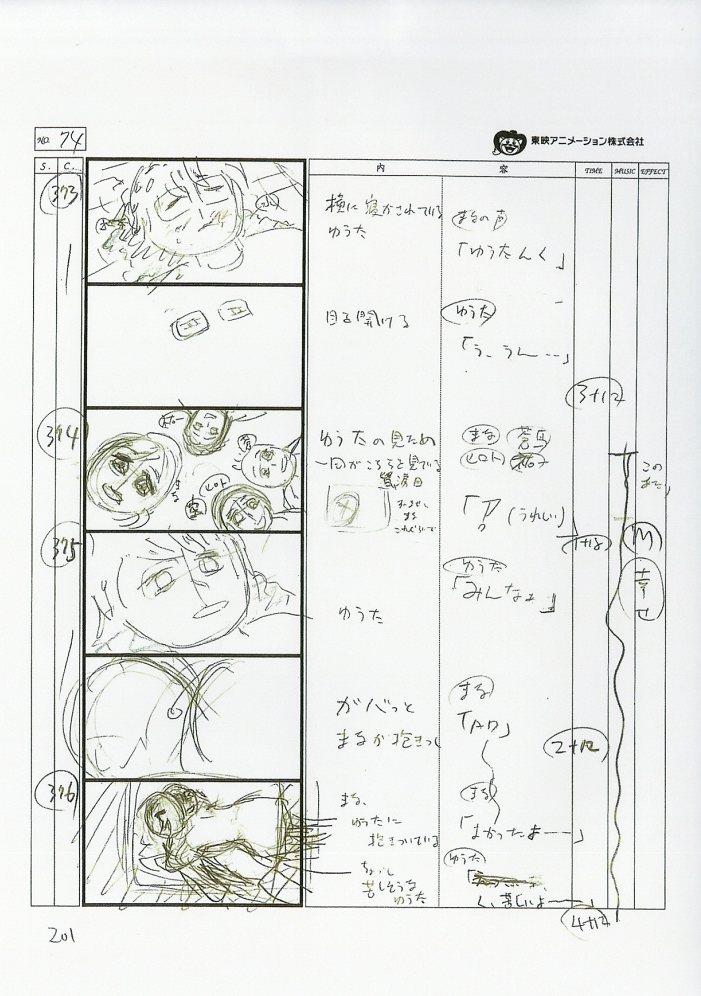 NO. 74
東映アニメーション株式会社
S. C. 内 容 TIME MUSIC EFFECT
373
横に寝かされている
ゆうた
まなの声
「ゆうたんく」
目を開ける
ゆうた
「う、うん…」
3+12
374
ゆうたの見ため
一同がこちらを見てる
まな 蒼馬
ヒロト
(うれしい)
ヒロト
まな
1+18
M
幸せ
375
ゆうた
「みんなぁ」
ゆうた
ガバっと
まなが抱きつく
まな
2+12
376
まな、
ゆうたに
抱きついている
まな
「よかったぁーー」
ちょっと
苦しそうな
ゆうた
ゆうた
く、苦しいよーー」
4+12
201